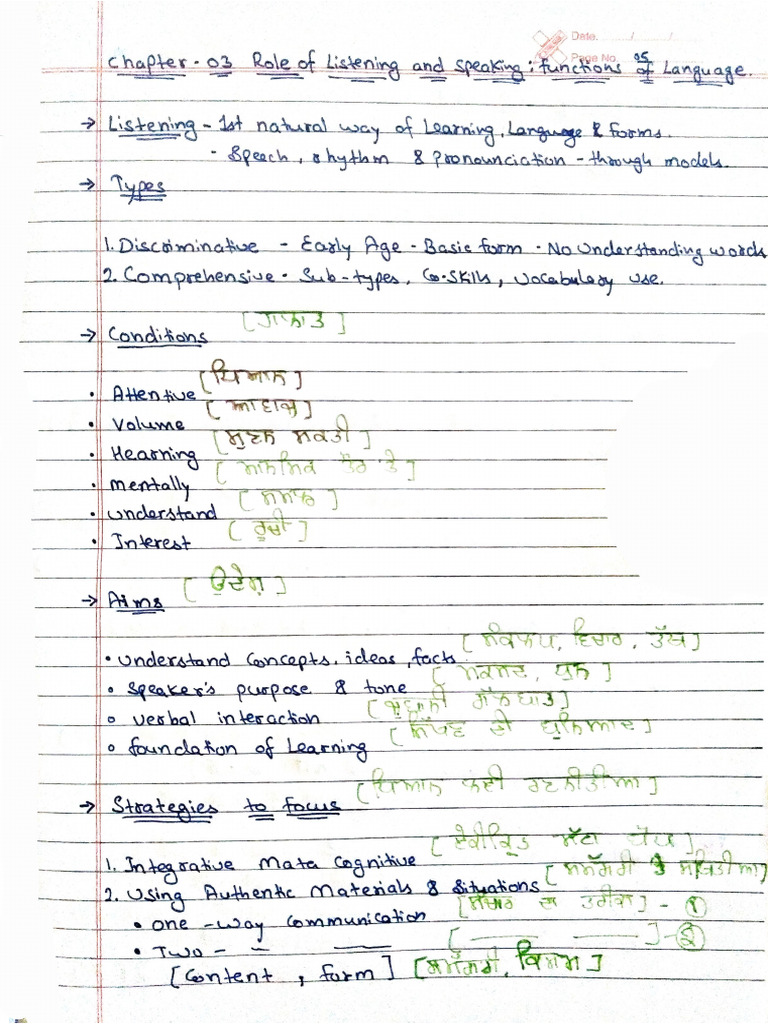 Date. / /
Page No. 05
Chapter - 03 Role of Listening and Speaking : functions of Language.
→ Listening - 1st natural way of Learning, Language & forms.
- Speech, rhythm & Pronounciation - through models.
→ Types
1. Discriminative - Early Age - Basic form - No Understanding words
2. Comprehensive - Sub-types, Co-Skills, Vocabulary use.
→ Conditions [ਹਾਲਾਤ]
• Attentive [ਧਿਆਨ]
• Volume [ਆਵਾਜ਼]
• Hearning [ਸੁਣਨ ਸ਼ਕਤੀ]
• mentally [ਮਾਨਸਿਕ ਤੌਰ ਤੇ]
• understand [ਸਮਝ]
• Interest [ਰੁਚੀ]
→ Aims [ਉਦੇਸ਼]
• Understand Concepts, ideas, facts [ਸੰਕਲਪ, ਵਿਚਾਰ, ਤੱਥ]
• Speaker's purpose & tone [ਮਕਸਦ, ਧੁਨ]
• verbal interaction [ਜ਼ੁਬਾਨੀ ਗੱਲਬਾਤ]
• foundation of Learning [ਸਿੱਖਣ ਦੀ ਬੁਨਿਆਦ]
→ Strategies to focus [ਧਿਆਨ ਲਈ ਰਣਨੀਤੀਆਂ]
1. Integrative Mata Cognitive [ਏਕੀਕ੍ਰਿਤ ਮੱਟਾ]
2. Using Authentic Materials & Situations [ਸਮੱਗਰੀ]
• One - way Communication [ਸੰਚਾਰ ਦਾ ਤਰੀਕਾ] - ①
• Two - [ ] - ②
[Content, form] [ਸਮੱਗਰੀ, ਕਿਸਮ]